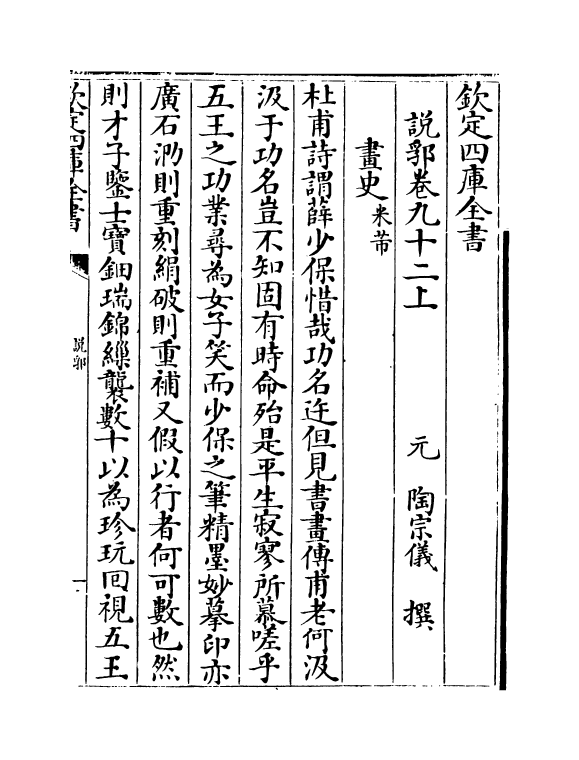 欽定四庫全書
說郛卷九十二上
元 陶宗儀 撰
畫史 米芾
杜甫詩謂薛少保惜哉功名迕但見書畫傳甫老何汲
汲于功名豈不知固有時命殆是平生寂寥所慕嗟乎
五王之功業尋為女子笑而少保之筆精墨妙摹印亦
廣石泐則重刻絹破則重補又假以行者何可數也然
則才子鑒士寶鈿瑞錦繅襲數十以為珍玩囘視五王
欽定四庫全書
說郛
一